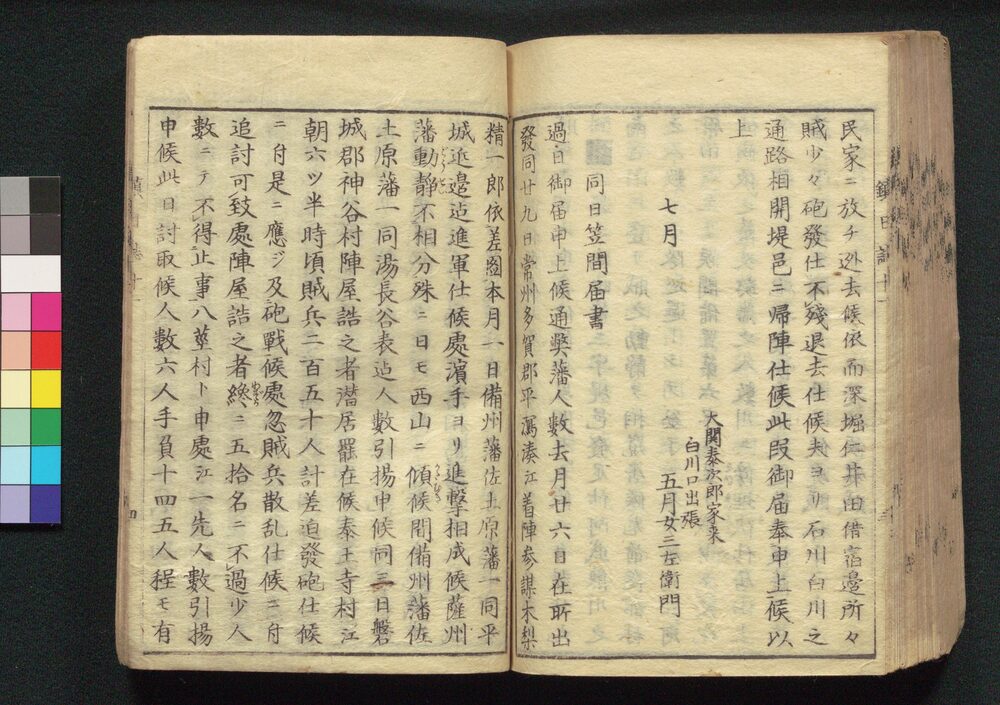 民家ニ放チ迯去候依而深堀仁井田借宿邊所々
賊少々砲發仕不殘退去仕候夫ヨリ石川白川之
通路相開堤邑ニ帰陣仕候此段御届奉申上候以
上
七月
大関泰次郎家来
白川口出張
五月女三左衛門
同日笠間届書
過日御届申上候通弊藩人數去月廿六日在所出
發同廿九日常州多賀郡平潟湊江着陣参謀木梨
精一郎依差圖本月一日備州藩佐土原藩一同平
城近邊迠進軍仕候處濱手ヨリ進撃相成候薩州
藩動静不相分殊ニ日モ西山ニ傾候間備州藩佐
土原藩一同湯長谷表迠人數引揚申候同三日磐
城郡神谷村陣屋詰之者潜居罷在候泰王寺村江
朝六ツ半時頃賊兵二百五十人計差迫發砲仕候
ニ付是ニ應ジ及砲戰候處忽賊兵散乱仕候ニ付
追討可致處陣屋詰之者終ニ五拾名ニ不過少人
數ニテ不得止事八莖村ト申處江一先人數引揚
申候此日討取候人數六人手負十四五人程モ有